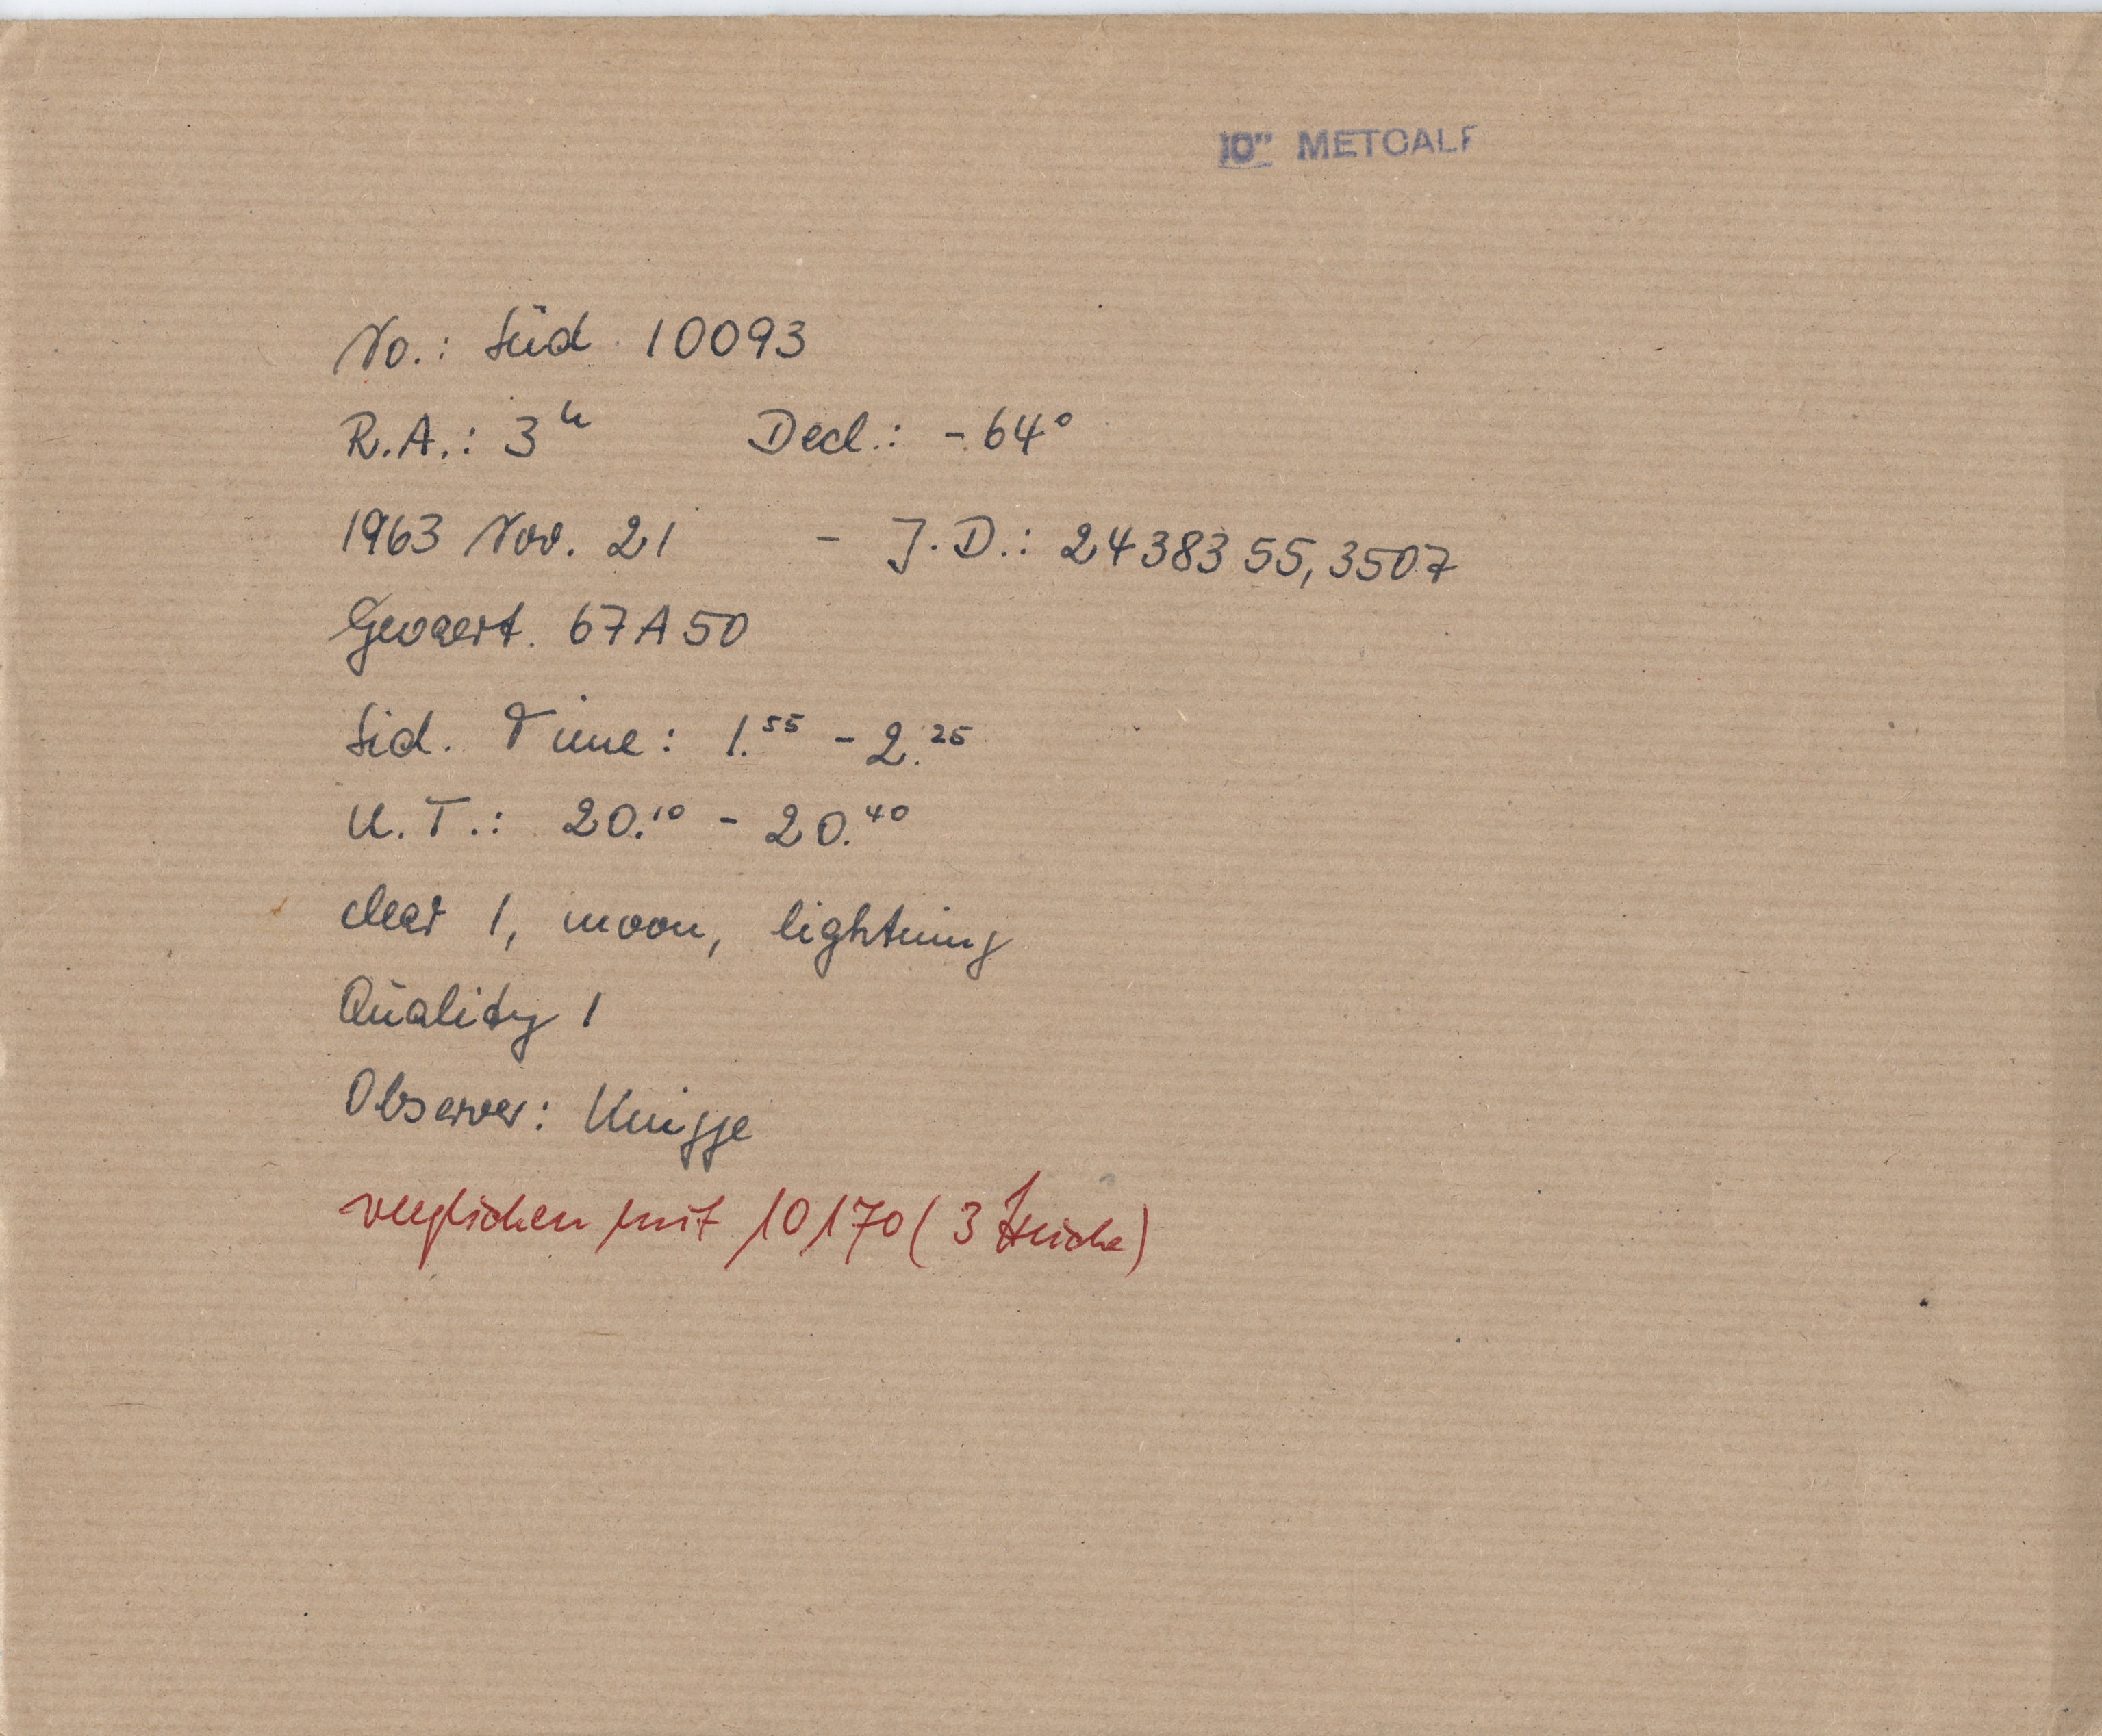 10" METCALF
No.: Süd 10093
R.A.: 3ʰ Decl.: -64°
1963 Nov. 21 - J.D.: 2438355,3507
Gevaert. 67A50
Sid. Time: 1.⁵⁵ - 2.²⁵
U.T.: 20.¹⁰ - 20.⁴⁰
clear 1, moon, lightning
Quality 1
Observer: Knigge
verglichen mit 10170 (3 Striche)